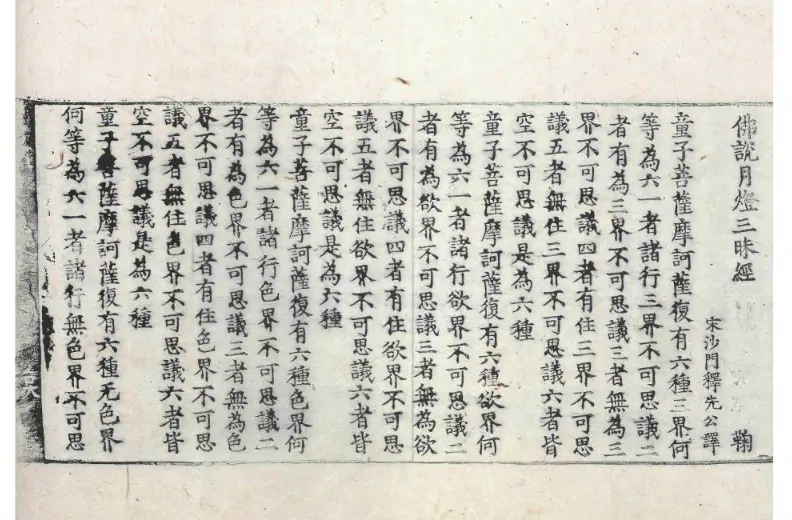 佛說月燈三昧經 鞠
宋沙門釋先公譯
童子菩薩摩訶薩復有六種三界何
等為六一者諸行三界不可思議二
者有為三界不可思議三者無為三
界不可思議四者有住三界不可思
議五者無住三界不可思議六者皆
空不可思議是為六種
童子菩薩摩訶薩復有六種欲界何
等為六一者諸行欲界不可思議二
者有為欲界不可思議三者無為欲
界不可思議四者有住欲界不可思
議五者無住欲界不可思議六者皆
空不可思議是為六種
童子菩薩摩訶薩復有六種色界何
等為六一者諸行色界不可思議二
者有為色界不可思議三者無為色
界不可思議四者有住色界不可思
議五者無住色界不可思議六者皆
空不可思議是為六種
童子菩薩摩訶薩復有六種无色界
何等為六一者諸行無色界不可思